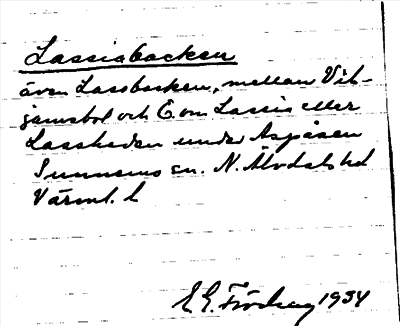 Lassisbacken
även Lassbacken, mellan Vil-
gamsbol och E om Lassis eller
Lassheden under Aspåsen
Sunnemo sn. N. Älvdals hd
Värml. l
E G. 1934